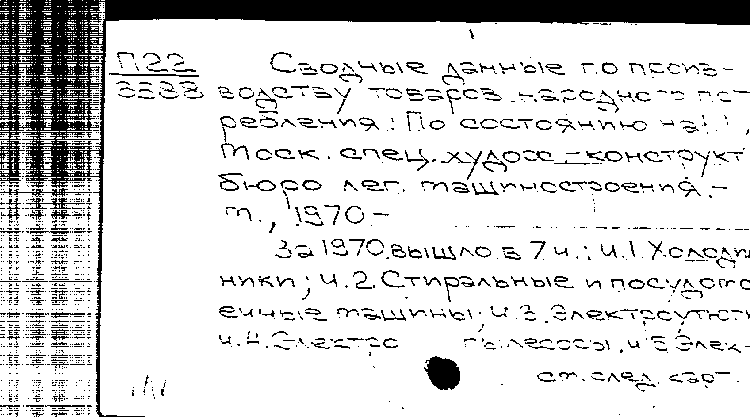 П22
3388
Сводные данные по произ-
водству товаров народного по-
ребления: По состоянию на
Моск. спец. худож-конструкт
бюро лег. машиностроения.-
м., 1970-
За 1970 вышло в 7 ч.: ч.1 Холоди
ники; ч.2. Стиральные и посудомо
ечные машины; ч.3. Электроутюги
ч.4. Электро пылесосы, ч 5 Элек-
см. след. карт.